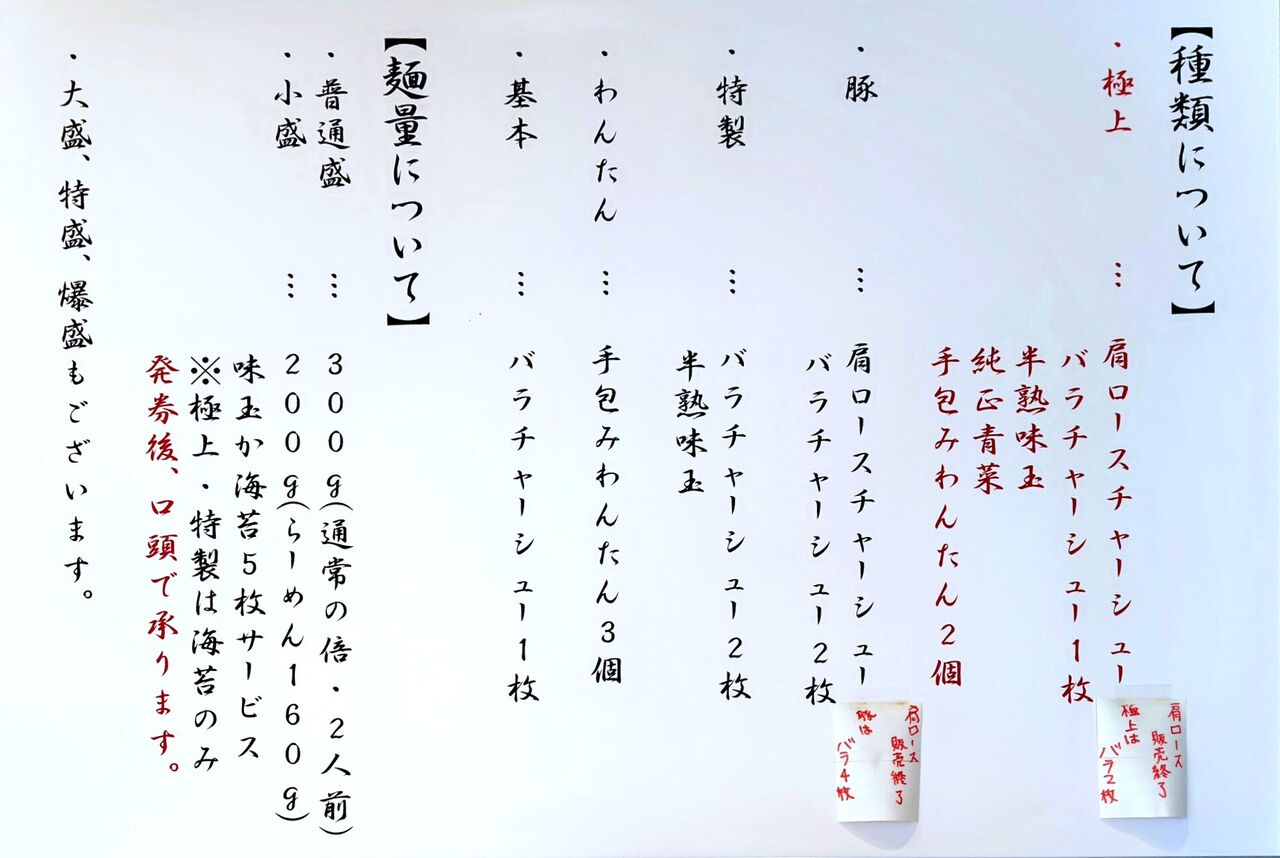 【種類について】
・極上 … 肩ロースチャーシュー
バラチャーシュー1枚
半熟味玉
純正青菜
手包みわんたん2個
肩ロース
販売終了
極上は
バラ2枚
・豚 … 肩ロースチャーシュー
バラチャーシュー2枚
肩ロース
販売終了
豚は
バラ4枚
・特製 … バラチャーシュー2枚
半熟味玉
・わんたん … 手包みわんたん3個
・基本 … バラチャーシュー1枚
【麺量について】
・普通盛 … 300g(通常の倍・2人前)
・小盛 … 200g(らーめん160g)
味玉か海苔5枚サービス
※極上・特製は海苔のみ
発券後、口頭で承ります。
・大盛、特盛、爆盛もございます。